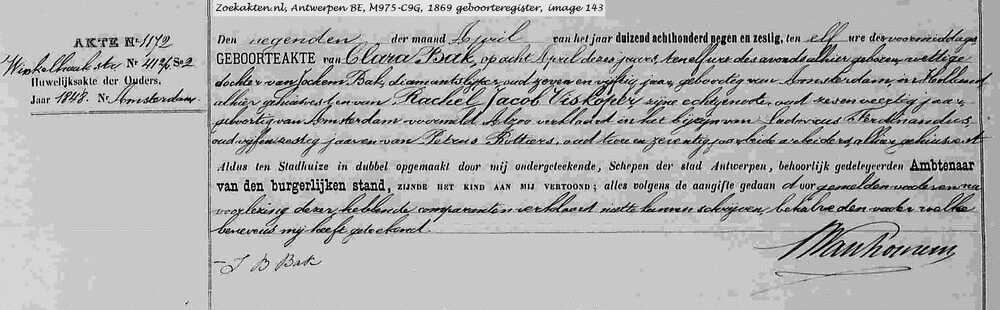 Zoekakten.nl, Antwerpen BE, M975-C9G, 1869 geboorteregister, image 143
AKTE Nr 1172
Nr 4136 S 2
Huwelijksakte der Ouders.
Jaar 1848. Nr Amsterdam
Den negenden der maand April van het jaar duizend achthonderd negen en zestig, ten elf ure des voormiddags
GEBOORTEAKTE van Clara Bak, op acht April dezes jaars, ten elf ure des avonds alhier geboren, wettige
dochter van Jochem Bak, diamantslijper, oud zeven en vijftig jaar, geboortig van Amsterdam, in Holland
alhier gehuisvest en van Rachel Jacob Viskoper zijne echtgenoote, oud zes en veertig jaar,
geboortig van Amsterdam voormeld. Alzoo verklaard in het bijzijn van Ludovicus Ferdinandus,
oud vijf en zestig jaar en van Petrus Rottiers, oud twee en zeventig jaar beide arbeiders alhier gehuisvest
Aldus ten Stadhuize in dubbel opgemaakt door mij ondergeteekende, Schepen der stad Antwerpen, behoorlijk gedelegeerden Ambtenaar
van den burgerlijken stand, ZIJNDE HET KIND AAN MIJ VERTOOND; alles volgens de aangifte gedaan door gemelden vader en na
voorlezing dezer hebbende comparanten verklaard niet te kunnen schrijven, behalve den vader welke
benevens mij heeft geteekend.
J B Bak